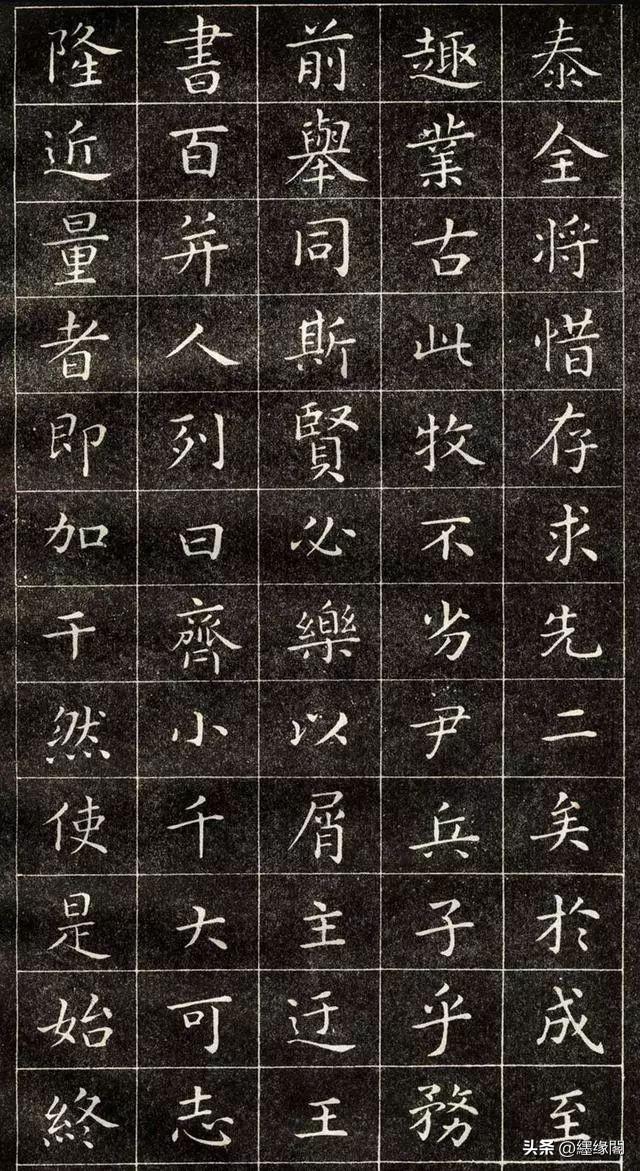 泰全将惜存求先二矣於成至
趣業古此牧不劣尹兵子乎務
前舉同斯賢必樂以屑主迂王
書百并人列曰齊小千大可志
隆近量者即加干然使是始終
头条 @纒缘閣